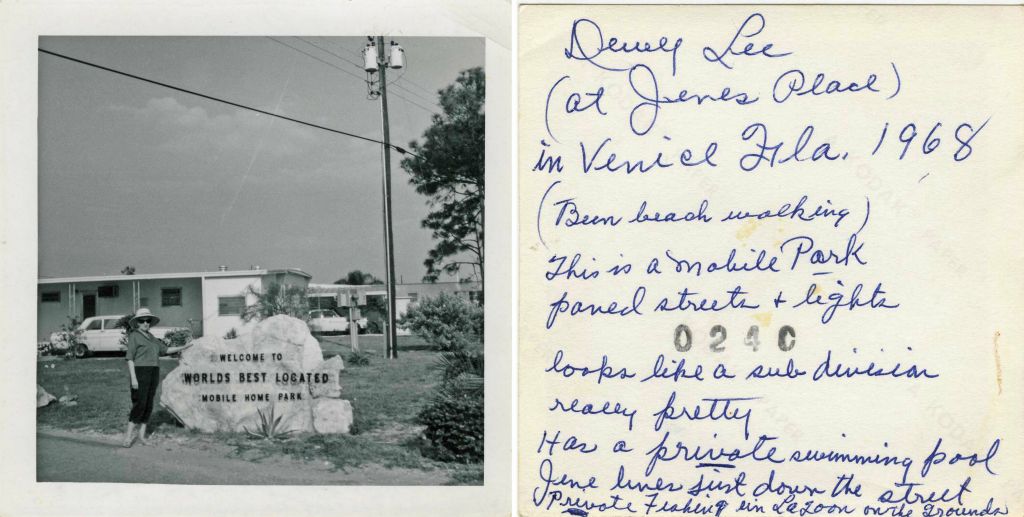 WELCOME TO
WORLDS BEST LOCATED
MOBILE HOME PARK
Dewey Lee
(at Jenes Place)
in Venice Fla. 1968
(Been beach walking)
This is a mobile Park
paved streets + lights
0240
looks like a sub division
really pretty
Has a private swimming pool
Jene lives just down the street
Private Fishing in Lagoon on the Grounds